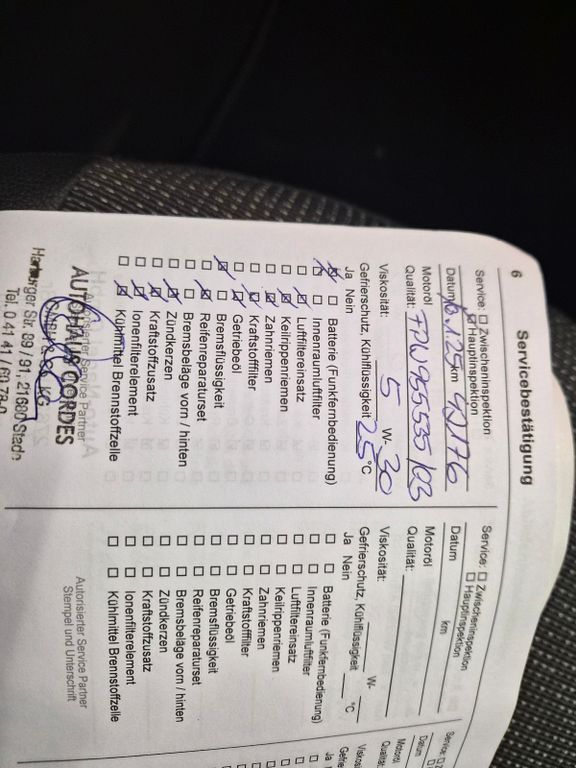 6
Servicebestätigung
Service: ☐ Zwischeninspektion
☒ Hauptinspektion
Datum 125 km 92176
Motoröl
Qualität: FPW 955535/03
Viskosität: 5 W- 30
Gefrierschutz, Kühlflüssigkeit 25 °C
Ja Nein
Batterie (Funkfernbedienung)
Innenraumluftfilter
Luftfiltereinsatz
Keilrippenriemen
Zahnriemen
Kraftstofffilter
Getriebeöl
Bremsflüssigkeit
Reifenreparaturset
Bremsbeläge vorn / hinten
Zündkerzen
Kraftstoffzusatz
Ionenfilterelement
Kühlmittel Brennstoffzelle
Autorisierter Service Partner
AUTOHAUS CORDES
Harburger Str. 89 / 91, 21680 Stade
Service: ☐ Zwischeninspektion
☐ Hauptinspektion
Datum km
Motoröl
Qualität:
Viskosität: W-
Gefrierschutz, Kühlflüssigkeit °C
Ja Nein
☐ ☐ Batterie (Funkfernbedienung)
☐ ☐ Innenraumluftfilter
☐ ☐ Luftfiltereinsatz
☐ ☐ Keilrippenriemen
☐ ☐ Zahnriemen
☐ ☐ Kraftstofffilter
☐ ☐ Getriebeöl
☐ ☐ Bremsflüssigkeit
☐ ☐ Reifenreparaturset
☐ ☐ Bremsbeläge vorn / hinten
☐ ☐ Zündkerzen
☐ ☐ Kraftstoffzusatz
☐ ☐ Ionenfilterelement
☐ ☐ Kühlmittel Brennstoffzelle
Autorisierter Service Partner
Stempel und Unterschrift
Service:
Datum
Motoröl